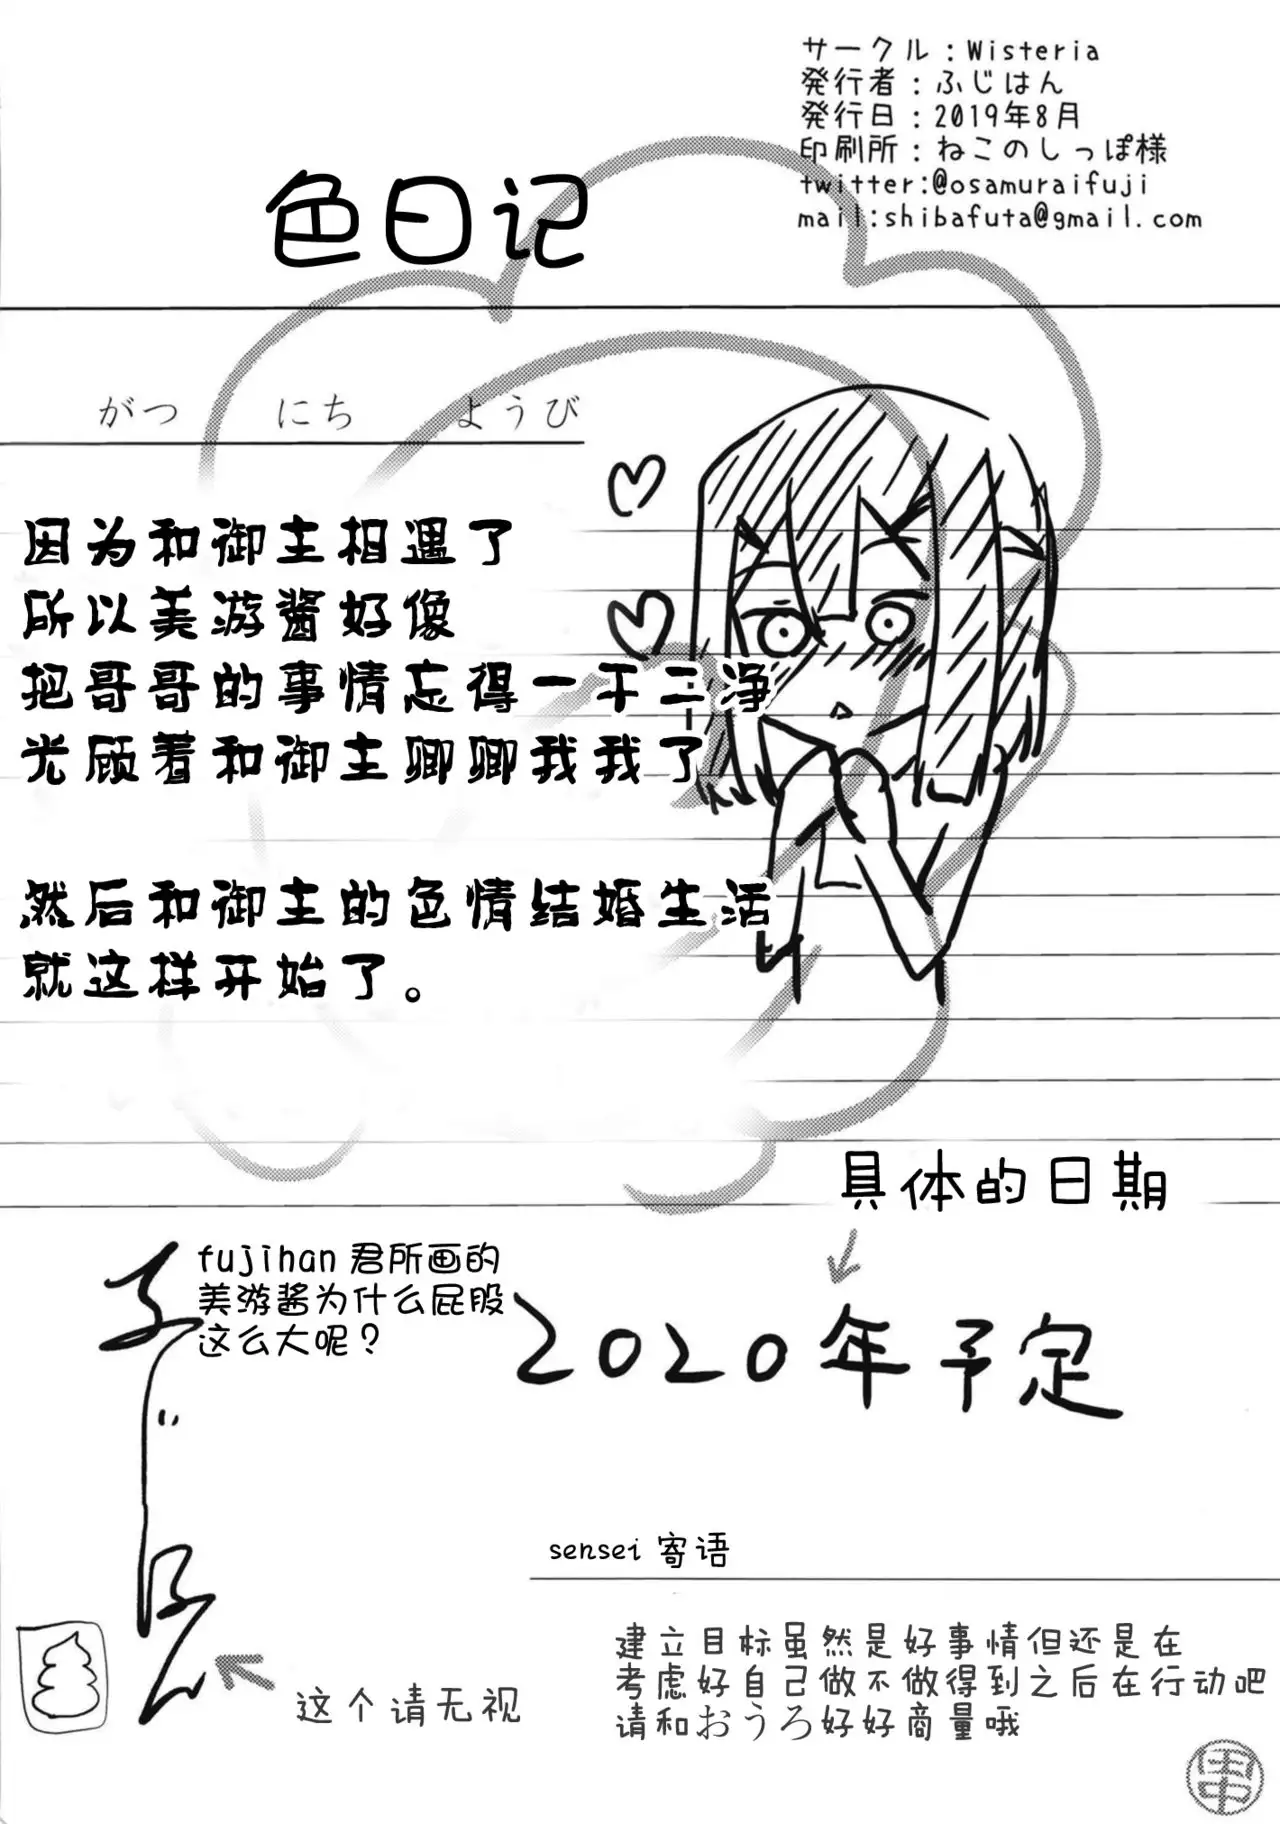 サークル：Wisteria
発行者：ふじはん
発行日：2019年8月
印刷所：ねこのしっぽ様
twitter:@osamuraifuji
mail:shibafuta@gmail.com
色日记
がつ にち ようび
因为和御主相遇了
所以美游酱好像
把哥哥的事情忘得一干二净
光顾着和御主卿卿我我了
然后和御主的色情结婚生活
就这样开始了。
具体的日期
fujihan 君所画的
美游酱为什么屁股
这么大呢？
2020年予定
sensei 寄语
这个请无视
建立目标虽然是好事情但还是在
考虑好自己做不做得到之后在行动吧
请和おうろ好好商量哦